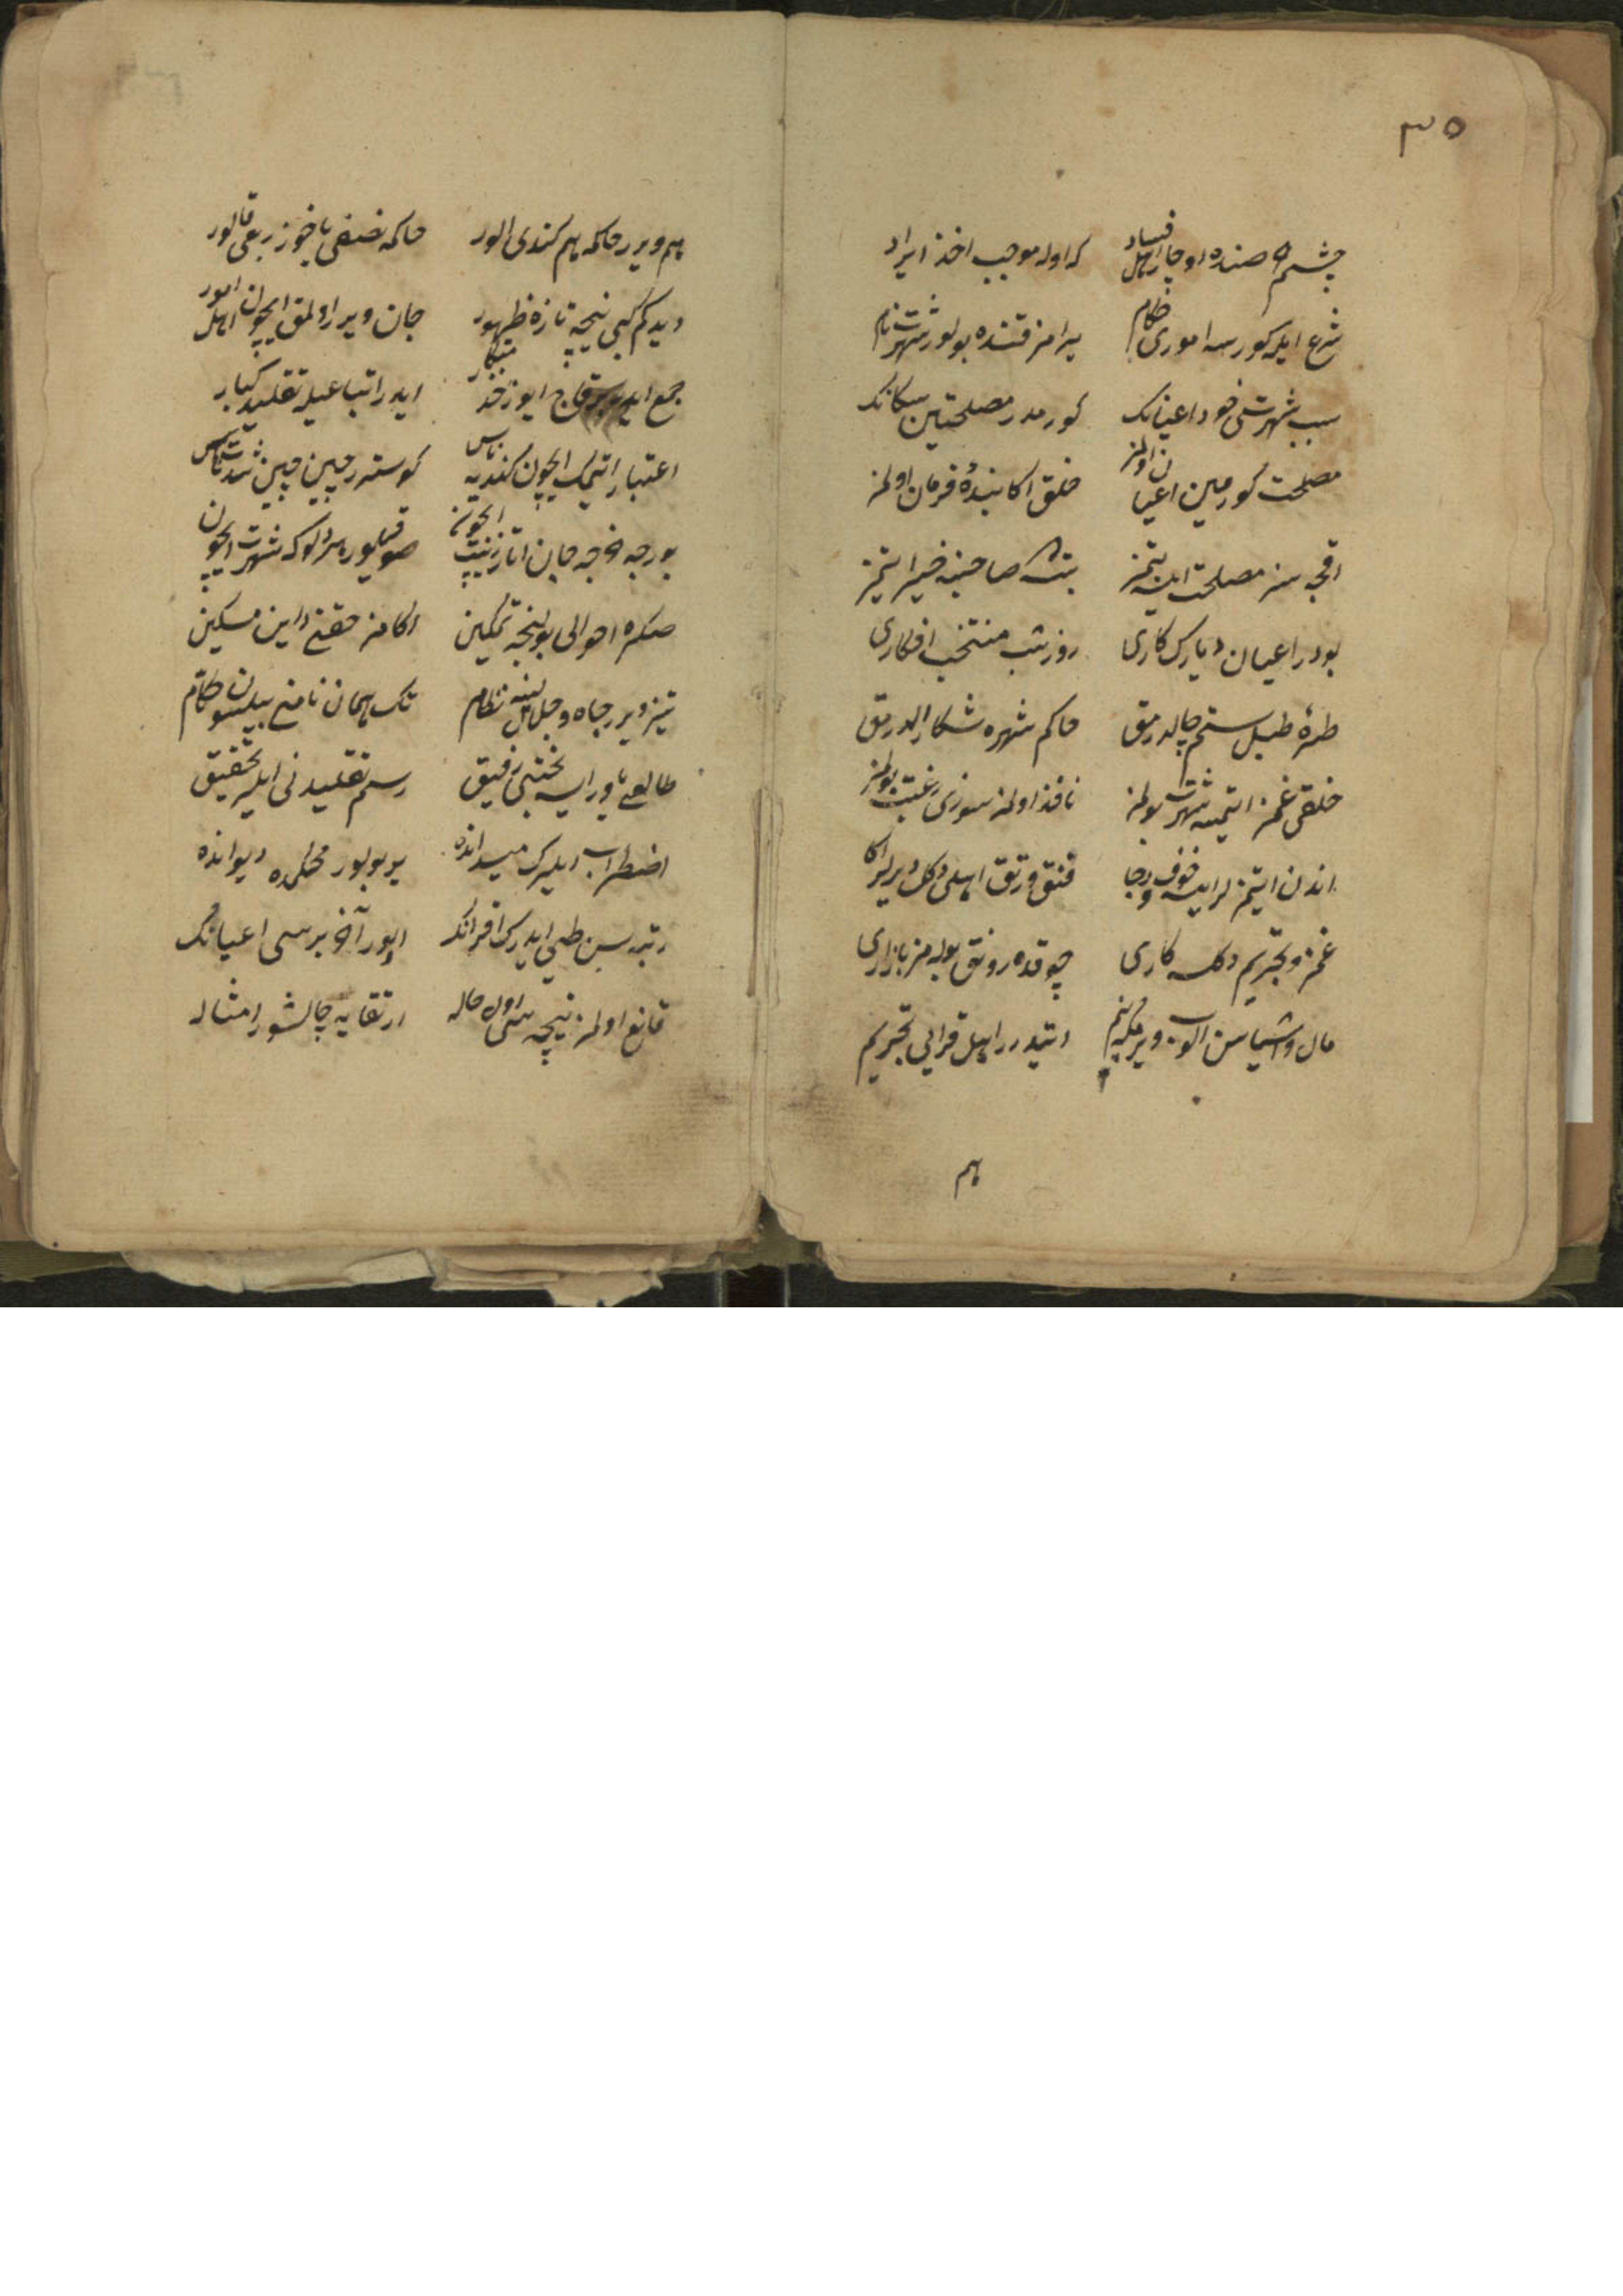 ٣٥
چشم صنده اوچار اهل فساد که اوله موجب اخذ ایراد
شرع ایله کورسه اموری حکام یرامز فتنده بولور شهرت نام
سبب شهرتی خود اعیانک کورمدر مصلحتین سکانک
مصلحت کورمین اعیان اولمز خلق اکا بندهٔ فرمان اولمز
اقچه سز مصلحت ایسه بتمز بتسه صاحبنه خیر ایتمز
بودر اعیان دیارک کاری روز شب منتخب افکاری
طرهٔ طبل ستم چالدرمق حاکم شهره شکار الدرمق
خلقی غمز ایتمسه شهرت بولمز نافذ اولمز سوزی رغبت بولمز
اندن ایتمزلر ایسه خوف و رجا فتق و رتق اهلی دکل دیرلر اکا
غمز و تجریم دکلسه کاری چوقده رونق بوله مز بازاری
مال و اشیاسن الوب ویر ایتدرر اهل قرایی تجریم
هم
هم ویرر حاکمه هم کندی الور حاکمه نصفی یاخود ربعی قالور
دیدکم کبی نیچه تازه ظهور جان ویرر اولمق ایچون اهل امور
جمع ایدر قاچ ایدر اتباعیله تقلید کبار
اعتبار ایتمک ایچون کندیه ناس کوستر چین جبین شدت باس
بورجه خرجه جان اتار زینت ایچون صوقیلور هر دلوکه شهرت ایچون
صکره احوالی بولنجه تمکین اکامز حقنی داین مسکین
تیز ویرر جاه و جلالنه نظام تک همان نامنی بیلسون حکام
طالعی یاور ایسه بختی رفیق رسم تقلیدنی ایلر تحقیق
اضطراب ایلیرک میدانده یر بولور محکمده دیوانده
رتبه سین طی ایدرک اقرانک اولور آخر برسی اعیانک
قانع اولمز نیچه سی اول حاله ارتقایه چالشور امثاله